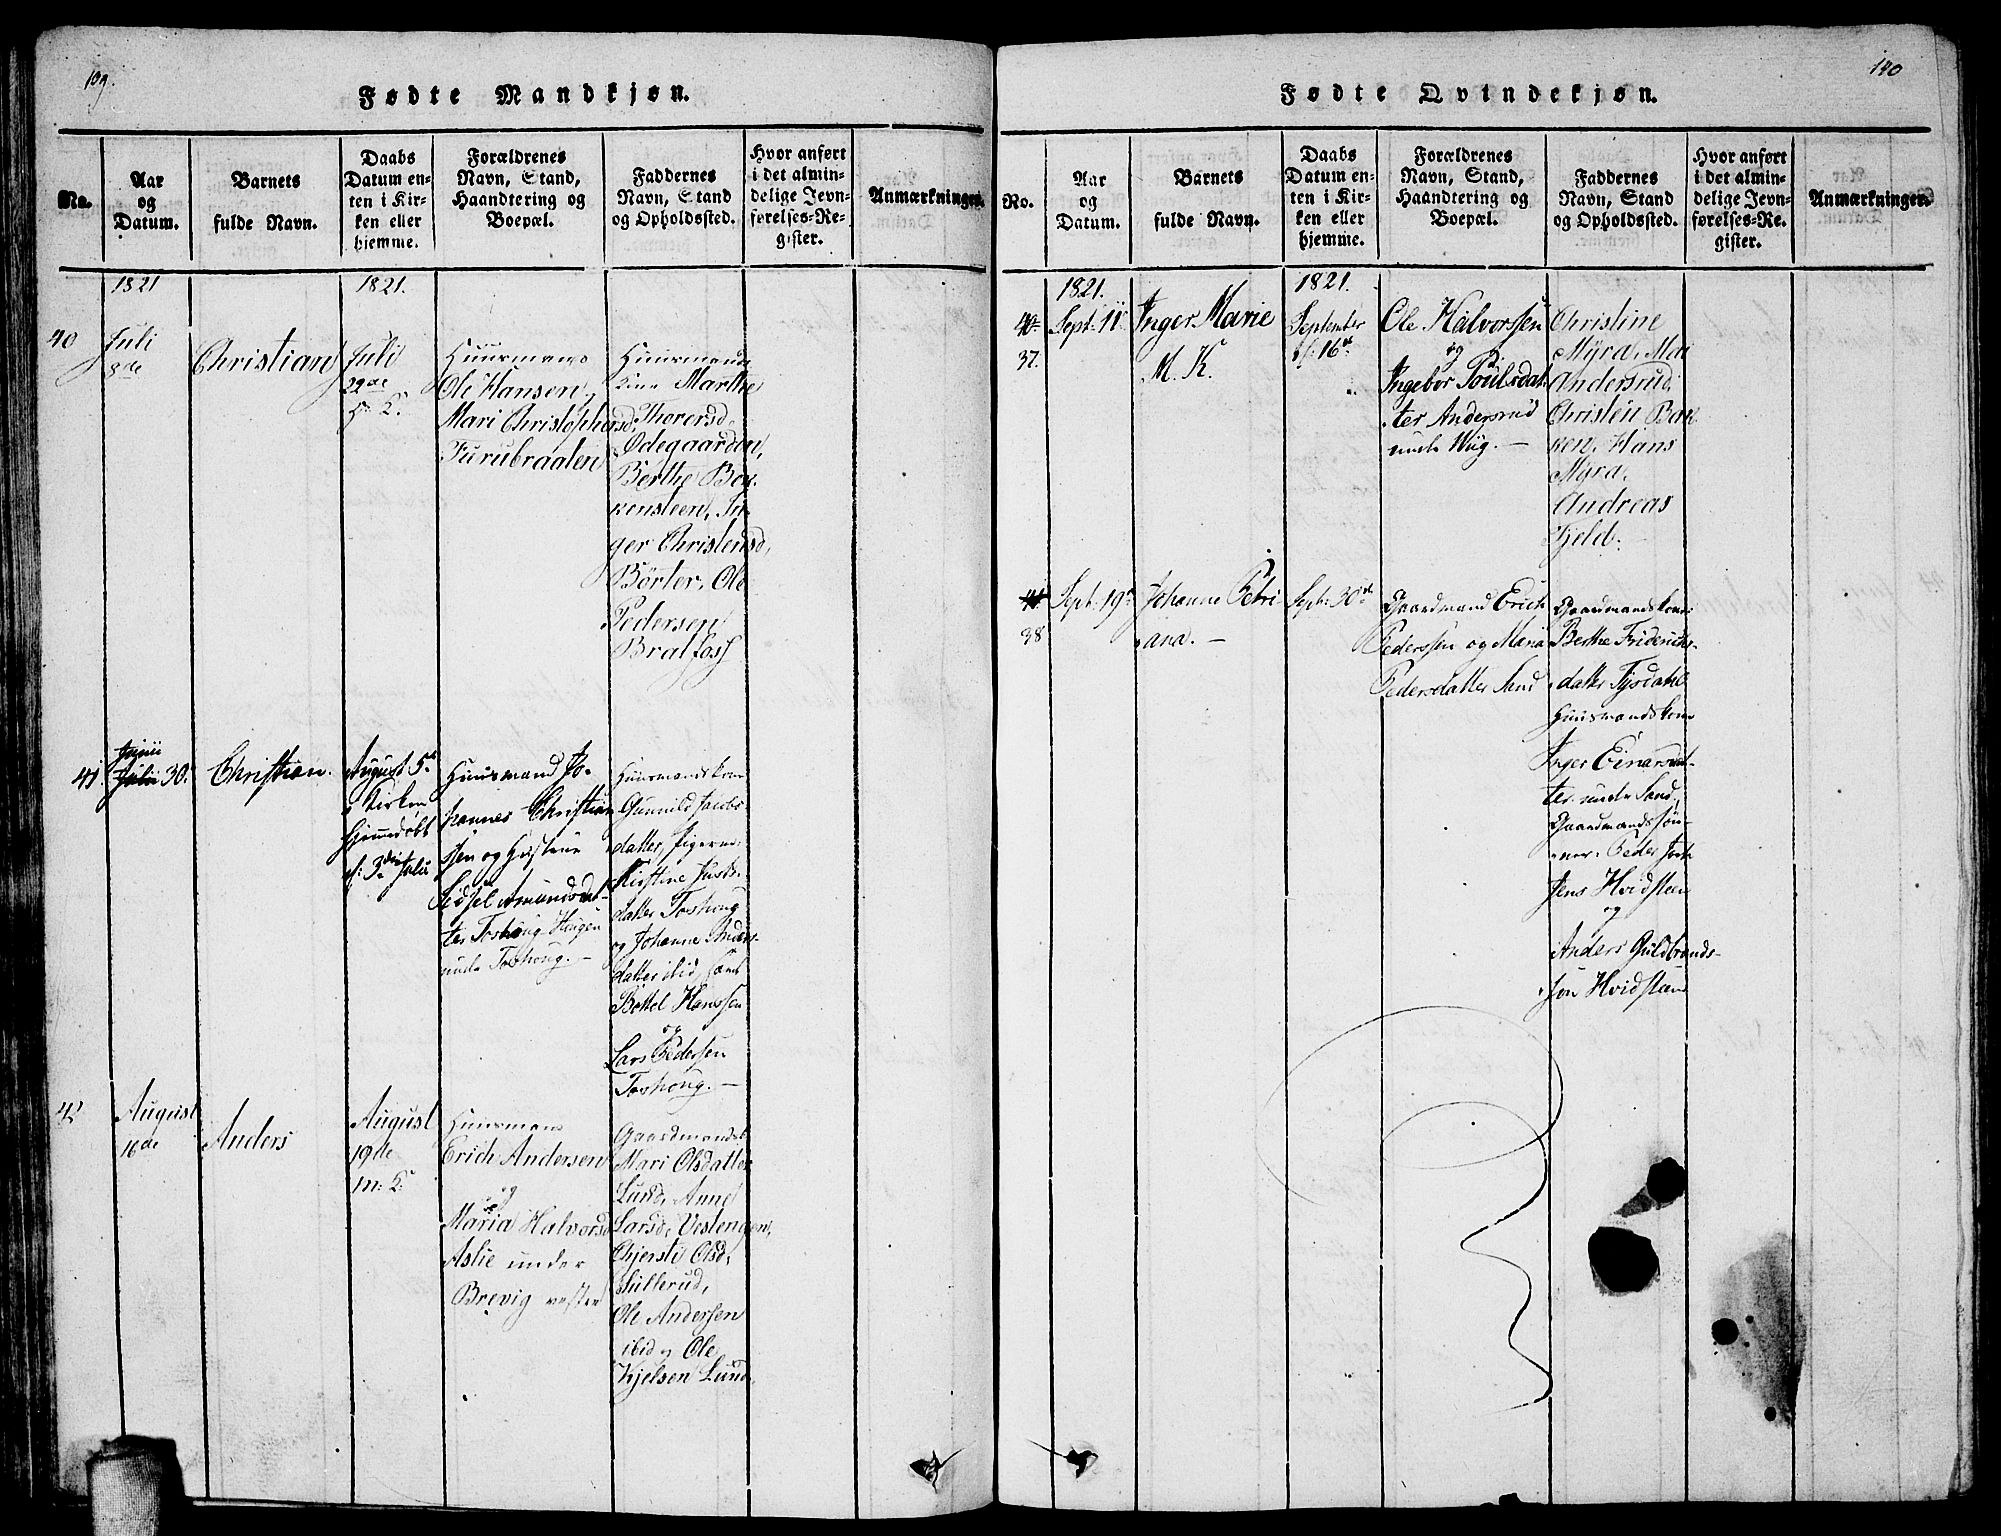 109.
Fødte Mandkjøn.
No.
Aar
og
Datum.
Barnets
fulde Navn.
Daabs
Datum en-
ten i Kir-
ken eller
hjemme.
Forældrenes
Navn, Stand,
Haandtering og
Boepæl.
Faddernes
Navn, Stand
og Opholdssted.
Hvor anført
i det almin-
delige Jevn-
førelses-Re-
gister.
Anmærkninger.
1821
1821.
40
Juli
8de
Christian
Juli
29de
Huusmand
Ole Hansen
Mari Christophersd.
Furubraaten
Huusmands
Marthe
Thorersd.
Ødegaarden,
Berthe Bak-
kensteen, In-
ger Christensd.
Börter, Ole
Pedersen
Bratfoss
41.
Junii
30.
Christian.
August 5te
i Kirken
hjemmedøbt
d: 3die Julii
Huusmand Jo-
hannes Christian
sen og Hustrue
Sidsel Amundsdat-
ter Toshoug-Haugen
under Toshoug. -
Huusmandskone
Gunnild Jacobs
datter, Pigerne
Kirstine
datter Toshoug
og Johanne Anders-
datter ibid, samt
Bottel Hanssen
og
Lars Pedersen
Toshoug. -
42
August
16de
Anders
August
19de
m: K.
Huusmand
Erich Andersen
og
Maria Halvorsd
Aslie under
Brevig vestre
Gaardmandsk.
Mari Olsdatter
Lund, Anne
Larsd. Vestengen,
Chjersti Olsd.
Sullerud,
Ole Andersen
ibid og Ole
Kjelsen Lund.
140
Fødte Qvindekjøn.
No.
Aar
og
Datum.
Barnets
fulde Navn.
Daabs
Datum en-
ten i Kir-
ken eller
hjemme.
Forældrenes
Navn, Stand,
Haandtering og
Boepæl.
Faddernes
Navn, Stand
og Opholdssted.
Hvor anført
i det almin-
delige Jevn-
førelses-Re-
gister.
Anmærkninger.
1821.
1821.
40
37.
Sept: 11
Inger Marie
M. K.
September
d: 16de
Ole Halvorssen
og
Ingebor Poulsdat
ter Andersrud
under Wiig. -
Christine
Myra, Mari
Andersrud
Christen Bak
ken, Hans
Myra,
Andreas
Fjeld.
38
Sept: 19de
Johanne Petri
ana. -
Sept: 30te
Gaardmand Erich
Pederssen og Maria
Pedersdatter Sand
Gaardmandskone
Berthe Friderichs-
datter Tysdahl
Huusmandskone
Inger Einarsdat-
ter under Sand,
Gaardmandssøn-
ner: Peder
Jens Hvidsteen
og
Anders Guldbrands-
søn Hvidsteen